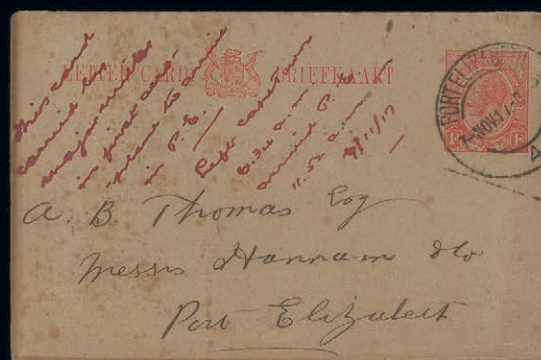 LETTER CARD BRIEFKAART
This card
carried by
major miller
in first aero-
plane to arrive
in P.E.
Left Capetown
6.30 a.m.
arrived P.E.
11.52 a.m.
9/11/17
PORT ELIZABETH
7-NOV 17
1d 1d
A. B. Thomas Esq
Messrs Hannam & Co
Port Elizabeth